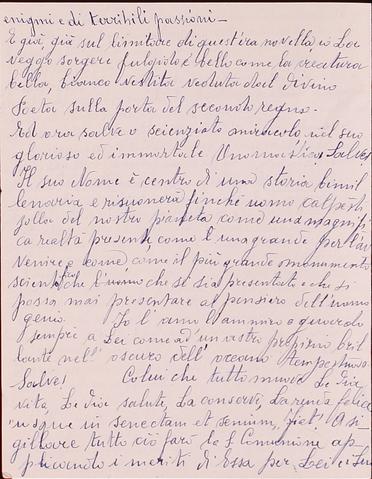 enigmi e di terribili passioni —
E già, già sul limitare di quest'èra novella io La
veggo sorgere fulgido e bello come la creatura
bella, bianco vestita veduta dal divino
Poeta sulla porta del secondo regno.
Ed ora salve o scienziato miracolo nel suo
glorioso ed immortale Onomastico, Salve!
Il suo Nome è centro di una storia bimil
lenaria e risuonerà finchè uomo calpesti
zolla del nostro pianeta come una magnifi
ca realtà presente, come una grande per l'av
venire e come il più grande monumento
scientifico che l'uomo che si sia presentato e che si
possa mai presentare al pensiero dell'uomo
genio. Io l'amo l'ammiro e guardo
sempre a Lei come ad un astro propizio bril
lante nell'oscuro dell'oceano tempestoso.
Salve! Colui che tutto muove Le dia
vita, Le dia salute, La conservi, La renda felice
usque in senectam et senium, fiet! A si
gillare tutto ciò farò la S. Comunione ap
plicando i meriti di Essa per Lei e i